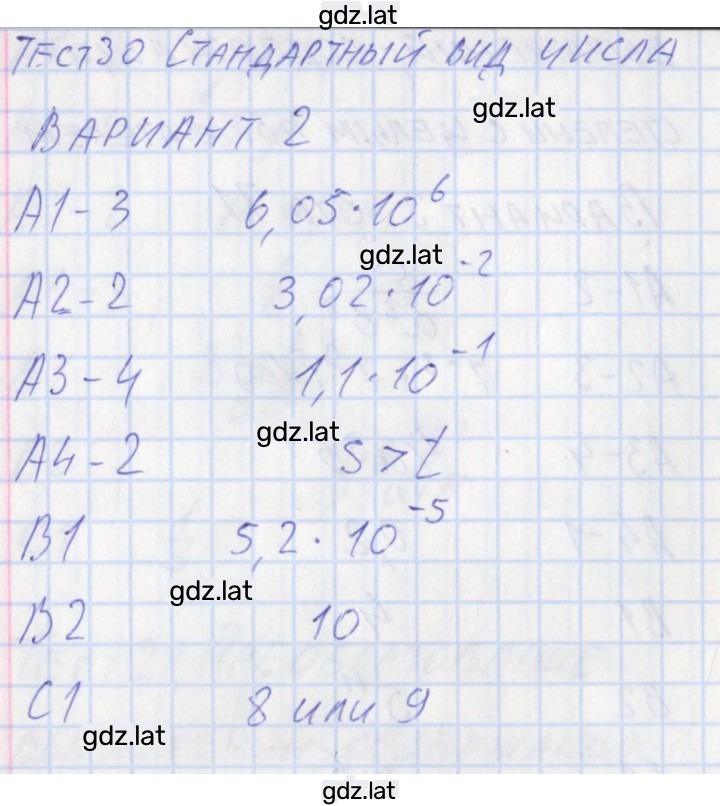 gdz.lat
Тест 30 Стандартный вид числа
gdz.lat
Вариант 2
А1 - 3 6,05·10⁶
gdz.lat
А2 - 2 3,02·10⁻²
А3 - 4 1,1·10⁻¹
gdz.lat
А4 - 2 s > t
В1 5,2·10⁻⁵
gdz.lat
В2 10
С1 8 или 9
gdz.lat
gdz.lat